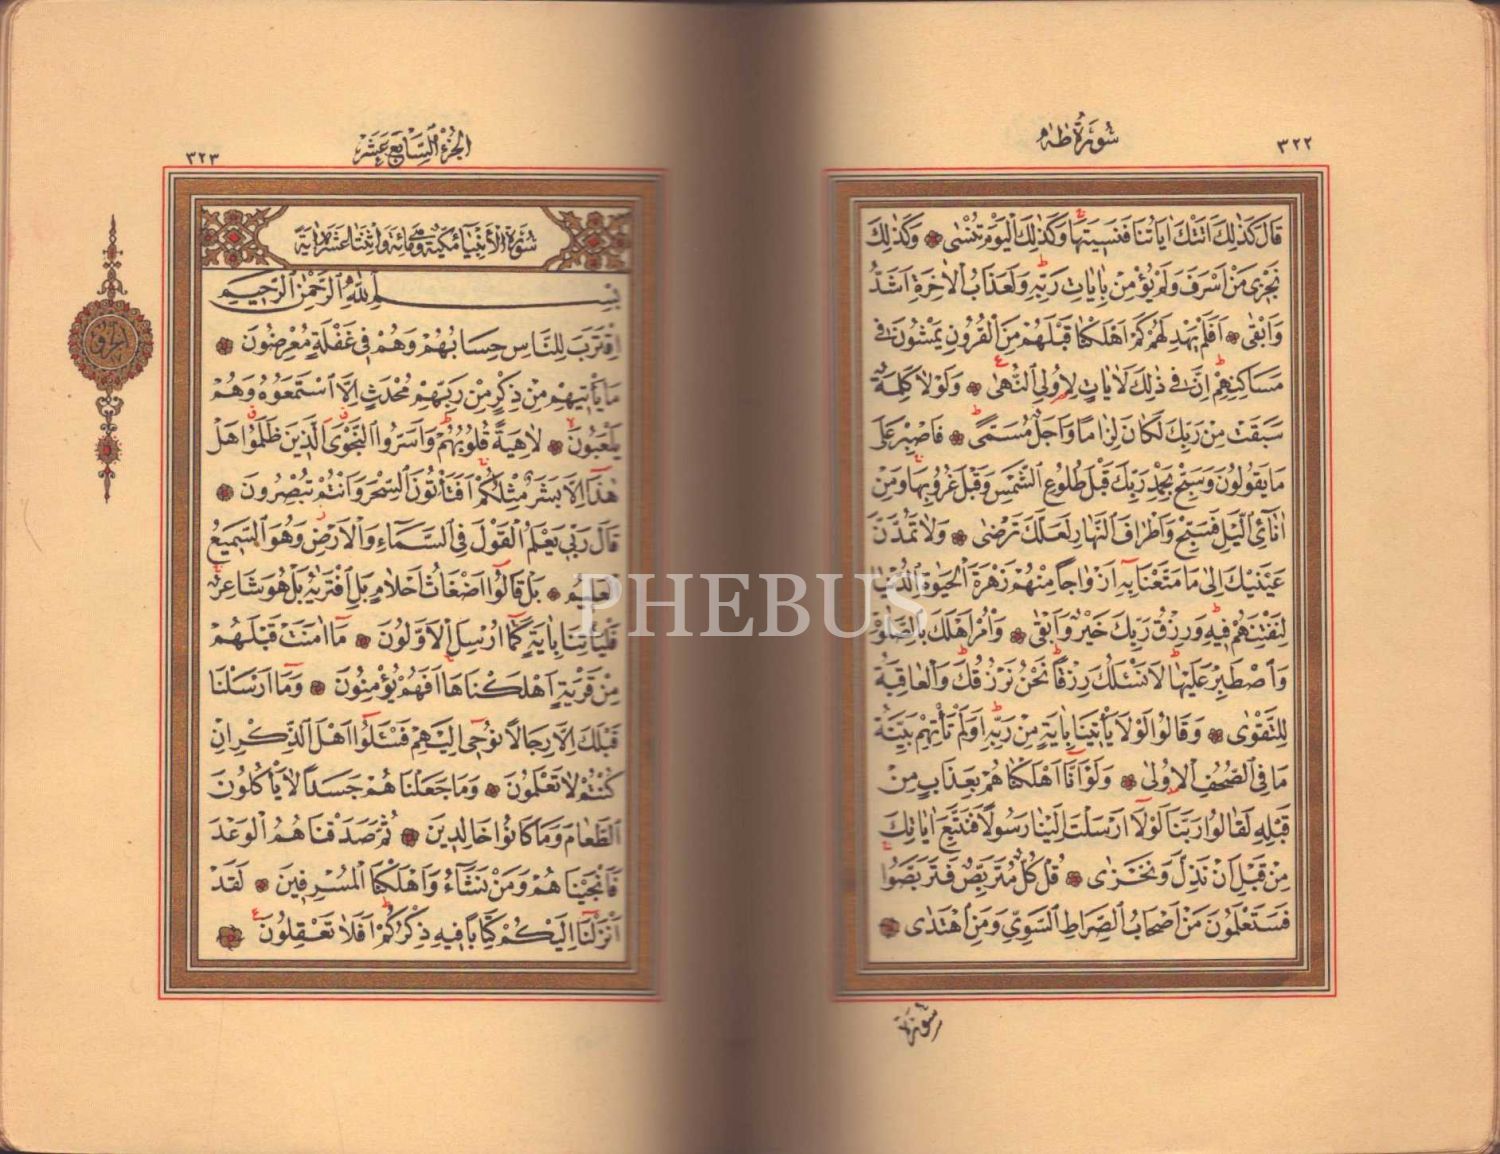 سورة طه
٣٢٢
قَالَ كَذٰلِكَ اَتَتْكَ اٰيَاتُنَا فَنَسِيتَهَا وَكَذٰلِكَ الْيَوْمَ تُنْسٰى وَكَذٰلِكَ
نَجْزِى مَنْ اَسْرَفَ وَلَمْ يُؤْمِنْ بِاٰيَاتِ رَبِّهِ وَلَعَذَابُ الْاٰخِرَةِ اَشَدُّ
وَاَبْقٰى اَفَلَمْ يَهْدِ لَهُمْ كَمْ اَهْلَكْنَا قَبْلَهُمْ مِنَ الْقُرُونِ يَمْشُونَ فِى
مَسَاكِنِهِمْ اِنَّ فِى ذٰلِكَ لَاٰيَاتٍ لِاُولِى النُّهٰى وَلَوْلَا كَلِمَةٌ
سَبَقَتْ مِنْ رَبِّكَ لَكَانَ لِزَامًا وَاَجَلٌ مُسَمًّى فَاصْبِرْ عَلٰى
مَا يَقُولُونَ وَسَبِّحْ بِحَمْدِ رَبِّكَ قَبْلَ طُلُوعِ الشَّمْسِ وَقَبْلَ غُرُوبِهَا وَمِنْ
اٰنَائِ الَّيْلِ فَسَبِّحْ وَاَطْرَافَ النَّهَارِ لَعَلَّكَ تَرْضٰى وَلَا تَمُدَّنَّ
عَيْنَيْكَ اِلٰى مَا مَتَّعْنَا بِهِ اَزْوَاجًا مِنْهُمْ زَهْرَةَ الْحَيٰوةِ الدُّنْيَا
لِنَفْتِنَهُمْ فِيهِ وَرِزْقُ رَبِّكَ خَيْرٌ وَاَبْقٰى وَاْمُرْ اَهْلَكَ بِالصَّلٰوةِ
وَاصْطَبِرْ عَلَيْهَا لَا نَسْـَٔلُكَ رِزْقًا نَحْنُ نَرْزُقُكَ وَالْعَاقِبَةُ
لِلتَّقْوٰى وَقَالُوا لَوْلَا يَأْتِينَا بِاٰيَةٍ مِنْ رَبِّهِ اَوَلَمْ تَأْتِهِمْ بَيِّنَةُ
مَا فِى الصُّحُفِ الْاُولٰى وَلَوْ اَنَّا اَهْلَكْنَاهُمْ بِعَذَابٍ مِنْ
قَبْلِهِ لَقَالُوا رَبَّنَا لَوْلَا اَرْسَلْتَ اِلَيْنَا رَسُولًا فَنَتَّبِعَ اٰيَاتِكَ
مِنْ قَبْلِ اَنْ نَذِلَّ وَنَخْزٰى قُلْ كُلٌّ مُتَرَبِّصٌ فَتَرَبَّصُوا
فَسَتَعْلَمُونَ مَنْ اَصْحَابُ الصِّرَاطِ السَّوِىِّ وَمَنِ اهْتَدٰى
سورة
الجزء السابع عشر
٣٢٣
سورة الأنبياء مكية وهي مائة واثنتا عشرة اية
بِسْمِ اللّٰهِ الرَّحْمٰنِ الرَّحِيمِ
اِقْتَرَبَ لِلنَّاسِ حِسَابُهُمْ وَهُمْ فِى غَفْلَةٍ مُعْرِضُونَ
مَا يَأْتِيهِمْ مِنْ ذِكْرٍ مِنْ رَبِّهِمْ مُحْدَثٍ اِلَّا اسْتَمَعُوهُ وَهُمْ
يَلْعَبُونَ لَاهِيَةً قُلُوبُهُمْ وَاَسَرُّوا النَّجْوَى الَّذِينَ ظَلَمُوا هَلْ
هٰذَا اِلَّا بَشَرٌ مِثْلُكُمْ اَفَتَأْتُونَ السِّحْرَ وَاَنْتُمْ تُبْصِرُونَ
قَالَ رَبِّى يَعْلَمُ الْقَوْلَ فِى السَّمَاءِ وَالْاَرْضِ وَهُوَ السَّمِيعُ
الْعَلِيمُ بَلْ قَالُوا اَضْغَاثُ اَحْلَامٍ بَلِ افْتَرٰيهُ بَلْ هُوَ شَاعِرٌ
فَلْيَأْتِنَا بِاٰيَةٍ كَمَا اُرْسِلَ الْاَوَّلُونَ مَا اٰمَنَتْ قَبْلَهُمْ
مِنْ قَرْيَةٍ اَهْلَكْنَاهَا اَفَهُمْ يُؤْمِنُونَ وَمَا اَرْسَلْنَا
قَبْلَكَ اِلَّا رِجَالًا نُوحِى اِلَيْهِمْ فَسْـَٔلُوا اَهْلَ الذِّكْرِ اِنْ
كُنْتُمْ لَا تَعْلَمُونَ وَمَا جَعَلْنَاهُمْ جَسَدًا لَا يَأْكُلُونَ
الطَّعَامَ وَمَا كَانُوا خَالِدِينَ ثُمَّ صَدَقْنَاهُمُ الْوَعْدَ
فَاَنْجَيْنَاهُمْ وَمَنْ نَشَاءُ وَاَهْلَكْنَا الْمُسْرِفِينَ لَقَدْ
اَنْزَلْنَا اِلَيْكُمْ كِتَابًا فِيهِ ذِكْرُكُمْ اَفَلَا تَعْقِلُونَ
الجزؤ
PHEBUS